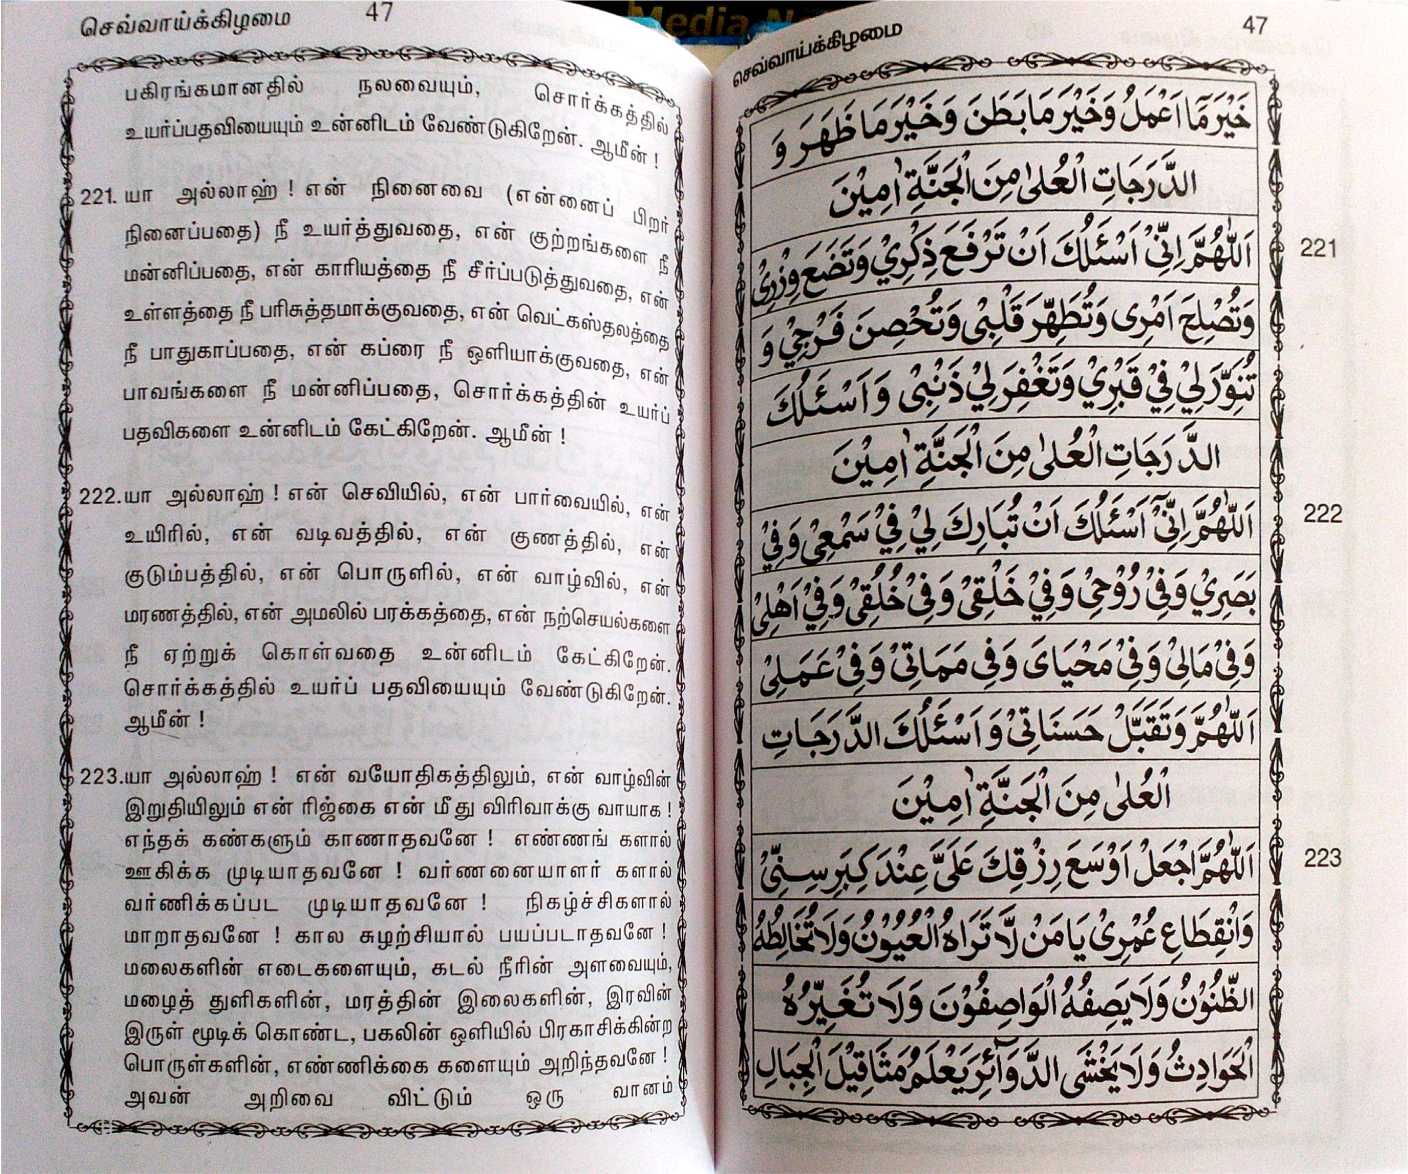 செவ்வாய்க்கிழமை 47
பகிரங்கமானதில் நலவையும், சொர்க்கத்தில்
உயர்ப்பதவியையும் உன்னிடம் வேண்டுகிறேன். ஆமீன் !
221. யா அல்லாஹ் ! என் நினைவை (என்னைப் பிறர்
நினைப்பதை) நீ உயர்த்துவதை, என் குற்றங்களை நீ
மன்னிப்பதை, என் காரியத்தை நீ சீர்ப்படுத்துவதை, என்
உள்ளத்தை நீ பரிசுத்தமாக்குவதை, என் வெட்கஸ்தலத்தை
நீ பாதுகாப்பதை, என் கப்ரை நீ ஒளியாக்குவதை, என்
பாவங்களை நீ மன்னிப்பதை, சொர்க்கத்தின் உயர்ப்
பதவிகளை உன்னிடம் கேட்கிறேன். ஆமீன் !
222. யா அல்லாஹ் ! என் செவியில், என் பார்வையில், என்
உயிரில், என் வடிவத்தில், என் குணத்தில், என்
குடும்பத்தில், என் பொருளில், என் வாழ்வில், என்
மரணத்தில், என் அமலில் பரக்கத்தை, என் நற்செயல்களை
நீ ஏற்றுக் கொள்வதை உன்னிடம் கேட்கிறேன்.
சொர்க்கத்தில் உயர்ப் பதவியையும் வேண்டுகிறேன்.
ஆமீன் !
223. யா அல்லாஹ் ! என் வயோதிகத்திலும், என் வாழ்வின்
இறுதியிலும் என் ரிஜ்கை என் மீது விரிவாக்கு வாயாக !
எந்தக் கண்களும் காணாதவனே ! எண்ணங் களால்
ஊகிக்க முடியாதவனே ! வர்ணனையாளர் களால்
வர்ணிக்கப்பட முடியாதவனே ! நிகழ்ச்சிகளால்
மாறாதவனே ! கால சுழற்சியால் பயப்படாதவனே !
மலைகளின் எடைகளையும், கடல் நீரின் அளவையும்,
மழைத் துளிகளின், மரத்தின் இலைகளின், இரவின்
இருள் மூடிக் கொண்ட, பகலின் ஒளியில் பிரகாசிக்கின்ற
பொருள்களின், எண்ணிக்கை களையும் அறிந்தவனே !
அவன் அறிவை விட்டும் ஒரு வானம்
செவ்வாய்க்கிழமை 47
خَيْرَ مَا اَعْمَلُ وَخَيْرَ مَا بَطَنَ وَخَيْرَ مَا ظَهَرَ وَ
الدَّرَجَاتِ الْعُلىٰ مِنَ الْجَنَّةِ اٰمِيْنَ
221 اَللّٰهُمَّ اِنِّيْ اَسْئَلُكَ اَنْ تَرْفَعَ ذِكْرِيْ وَتَضَعَ وِزْرِيْ
وَتُصْلِحَ اَمْرِى وَتُطَهِّرَ قَلْبِىْ وَتُحْصِنَ فَرْجِيْ وَ
تُنَوِّرَلِيْ فِيْ قَبْرِيْ وَتَغْفِرَلِيْ ذَنْبِىْ وَاَسْئَلُكَ
الدَّرَجَاتِ الْعُلىٰ مِنَ الْجَنَّةِ اٰمِيْنَ
222 اَللّٰهُمَّ اِنِّيْ اَسْئَلُكَ اَنْ تُبَارِكَ لِيْ فِيْ سَمْعِيْ وَفِيْ
بَصَرِيْ وَفِيْ رُوْحِيْ وَفِيْ خَلْقِىْ وَفِىْ خُلُقِىْ وَفِيْ اَهْلِىْ
وَفِىْ مَالِىْ وَفِىْ مَحْيَاىَ وَفِى مَمَاتِىْ وَفِىْ عَمَلِىْ
اَللّٰهُمَّ وَتَقَبَّلْ حَسَنَاتِىْ وَاَسْئَلُكَ الدَّرَجَاتِ
الْعُلىٰ مِنَ الْجَنَّةِ اٰمِيْنَ
223 اَللّٰهُمَّ اجْعَلْ اَوْسَعَ رِزْقِكَ عَلَيَّ عِنْدَ كِبَرِ سِنِّىْ
وَانْقِطَاعِ عُمْرِىْ يَا مَنْ لَّا تَرَاهُ الْعُيُوْنُ وَلَا تُخَالِطُهُ
الظُّنُوْنُ وَلَا يَصِفُهُ الْوَاصِفُوْنَ وَلَا تُغَيِّرُهُ
الْحَوَادِثُ وَلَا يَخْشَى الدَّوَآئِرَ يَعْلَمُ مَثَاقِيْلَ الْجِبَالِ